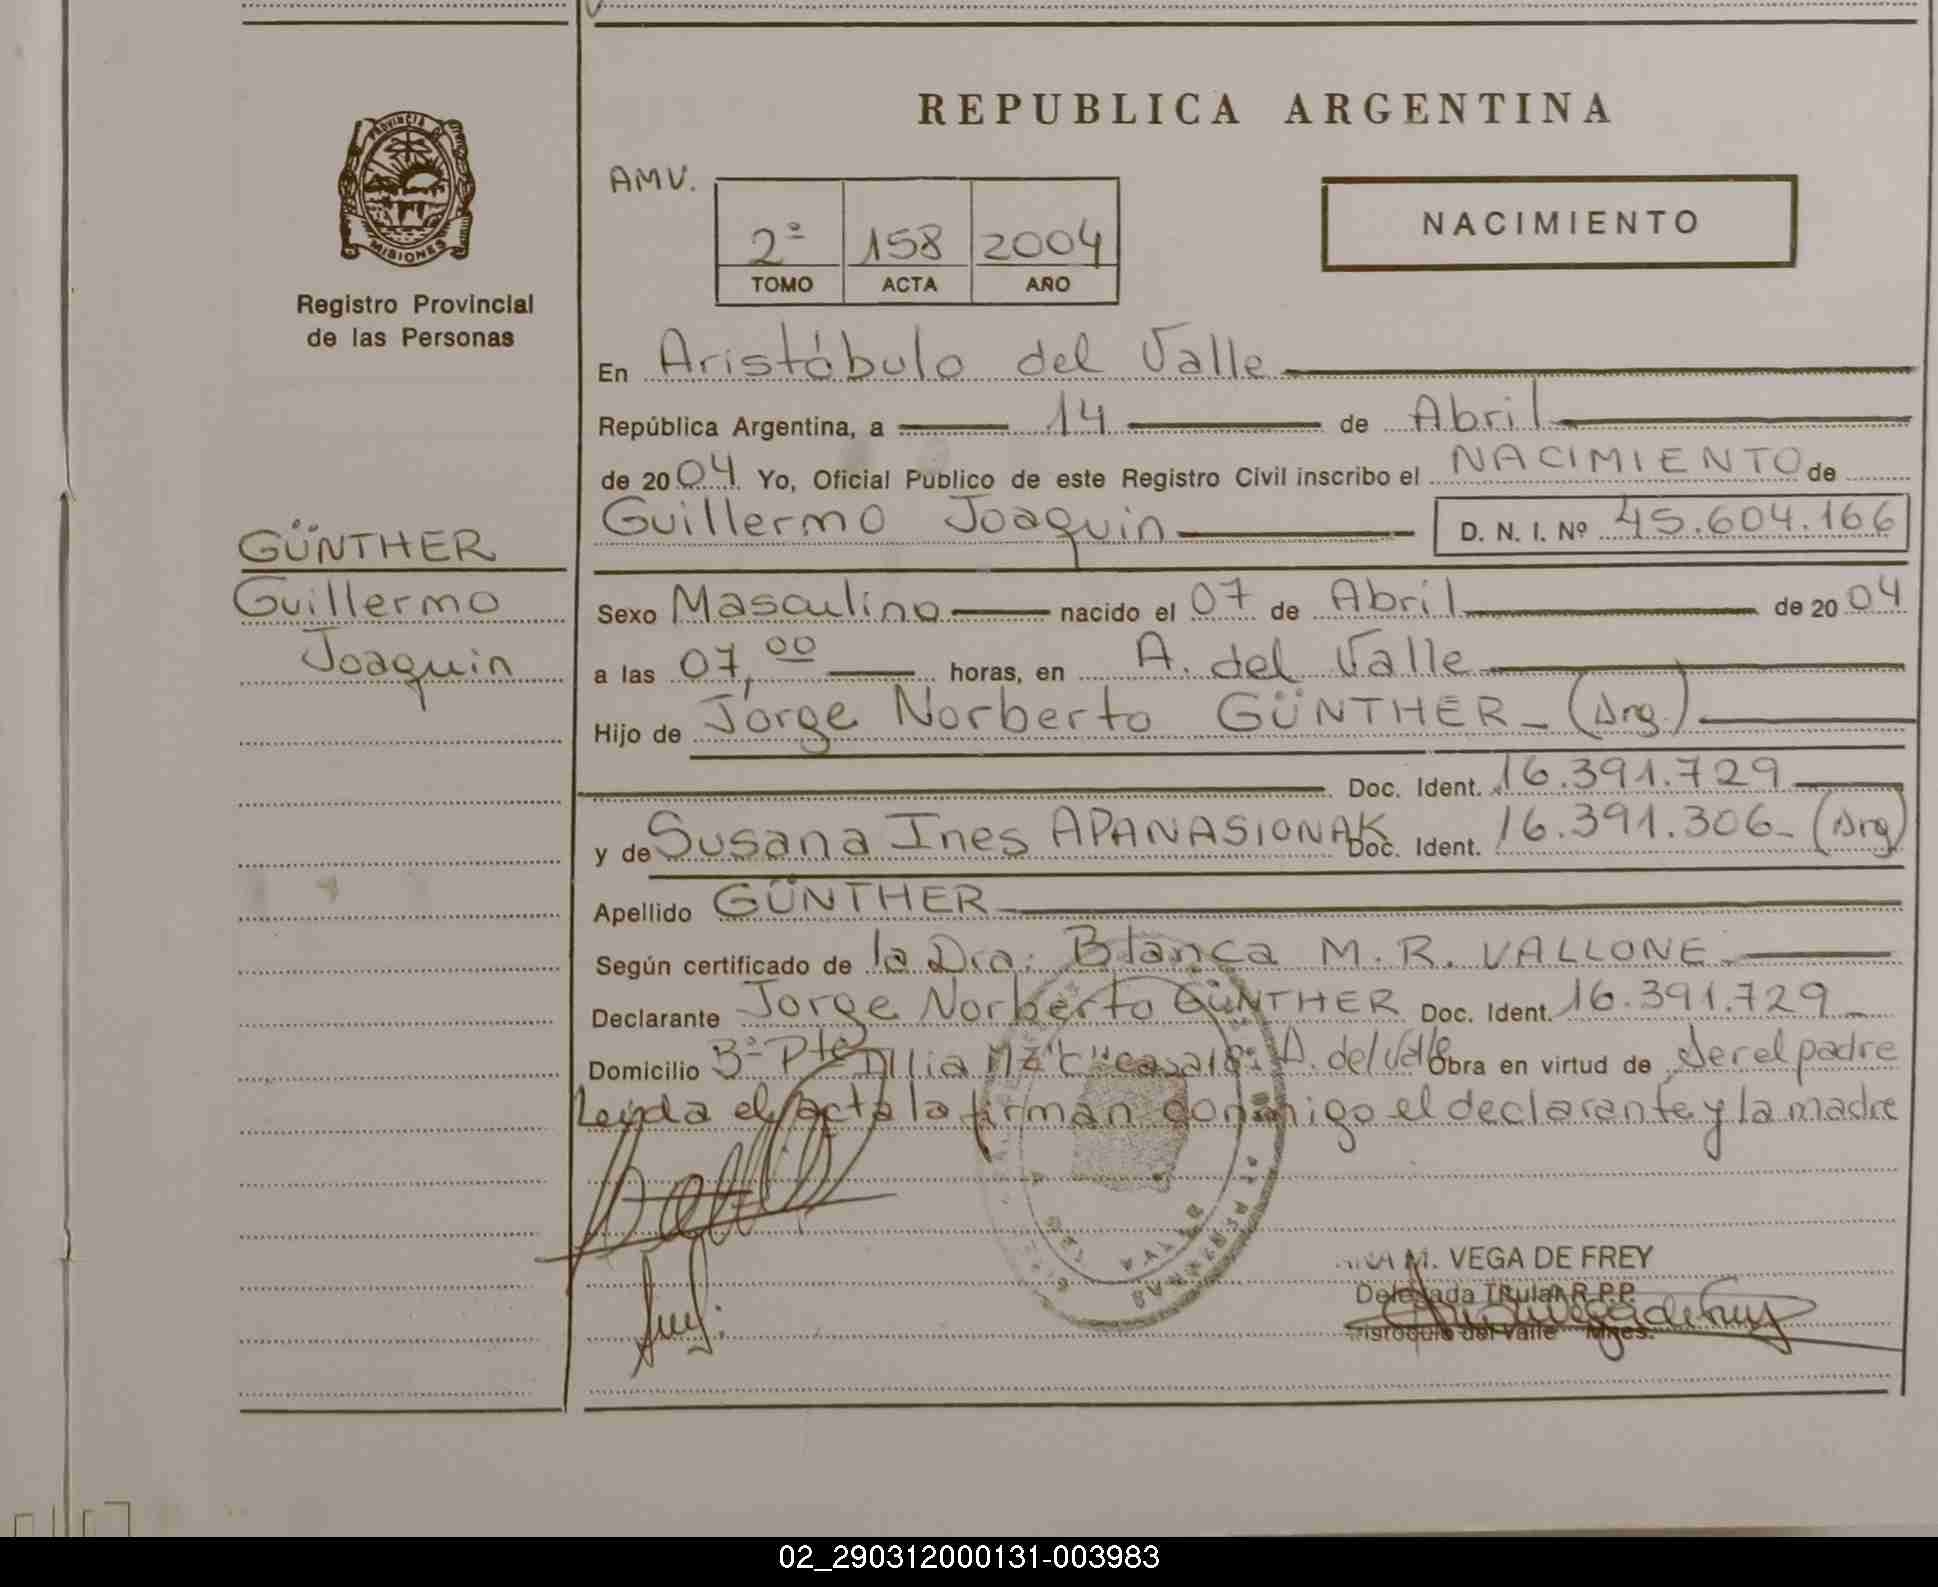 REPUBLICA ARGENTINA
PROVINCIA DE
MISIONES
Registro Provincial
de las Personas
AMV.
2º 158 2004
TOMO ACTA AÑO
NACIMIENTO
GÜNTHER
Guillermo
Joaquin
En Aristóbulo del Valle
República Argentina, a 14 de Abril
de 2004 Yo, Oficial Publico de este Registro Civil inscribo el NACIMIENTO de
Guillermo Joaquin D. N. I. Nº 45.604.166
Sexo Masculino nacido el 07 de Abril de 2004
a las 07,00 horas, en A. del Valle
Hijo de Jorge Norberto GÜNTHER (Arg.)
Doc. Ident. 16.391.729
y de Susana Ines APANASIONAK Doc. Ident. 16.391.306 (Arg)
Apellido GÜNTHER
Según certificado de la Dra. Blanca M. R. VALLONE
Declarante Jorge Norberto GÜNTHER Doc. Ident. 16.391.729
Domicilio Bº Pte Illia Mz "C" casa A. del Valle Obra en virtud de ser el padre
Leida el acta la firman conmigo el declarante y la madre
M. VEGA DE FREY
Delegada Titular R.P.P.
Aristóbulo del Valle Mnes.
02_290312000131-003983